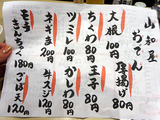 山和屋
おでん
大根 100円
厚揚げ 80円
ちくわ 200円
玉子 100円
ツミレ 100円
がんも 200円
ネギま 200円
牛スジ 120円
もち
きんちゃく 180円
ごぼ天 120円